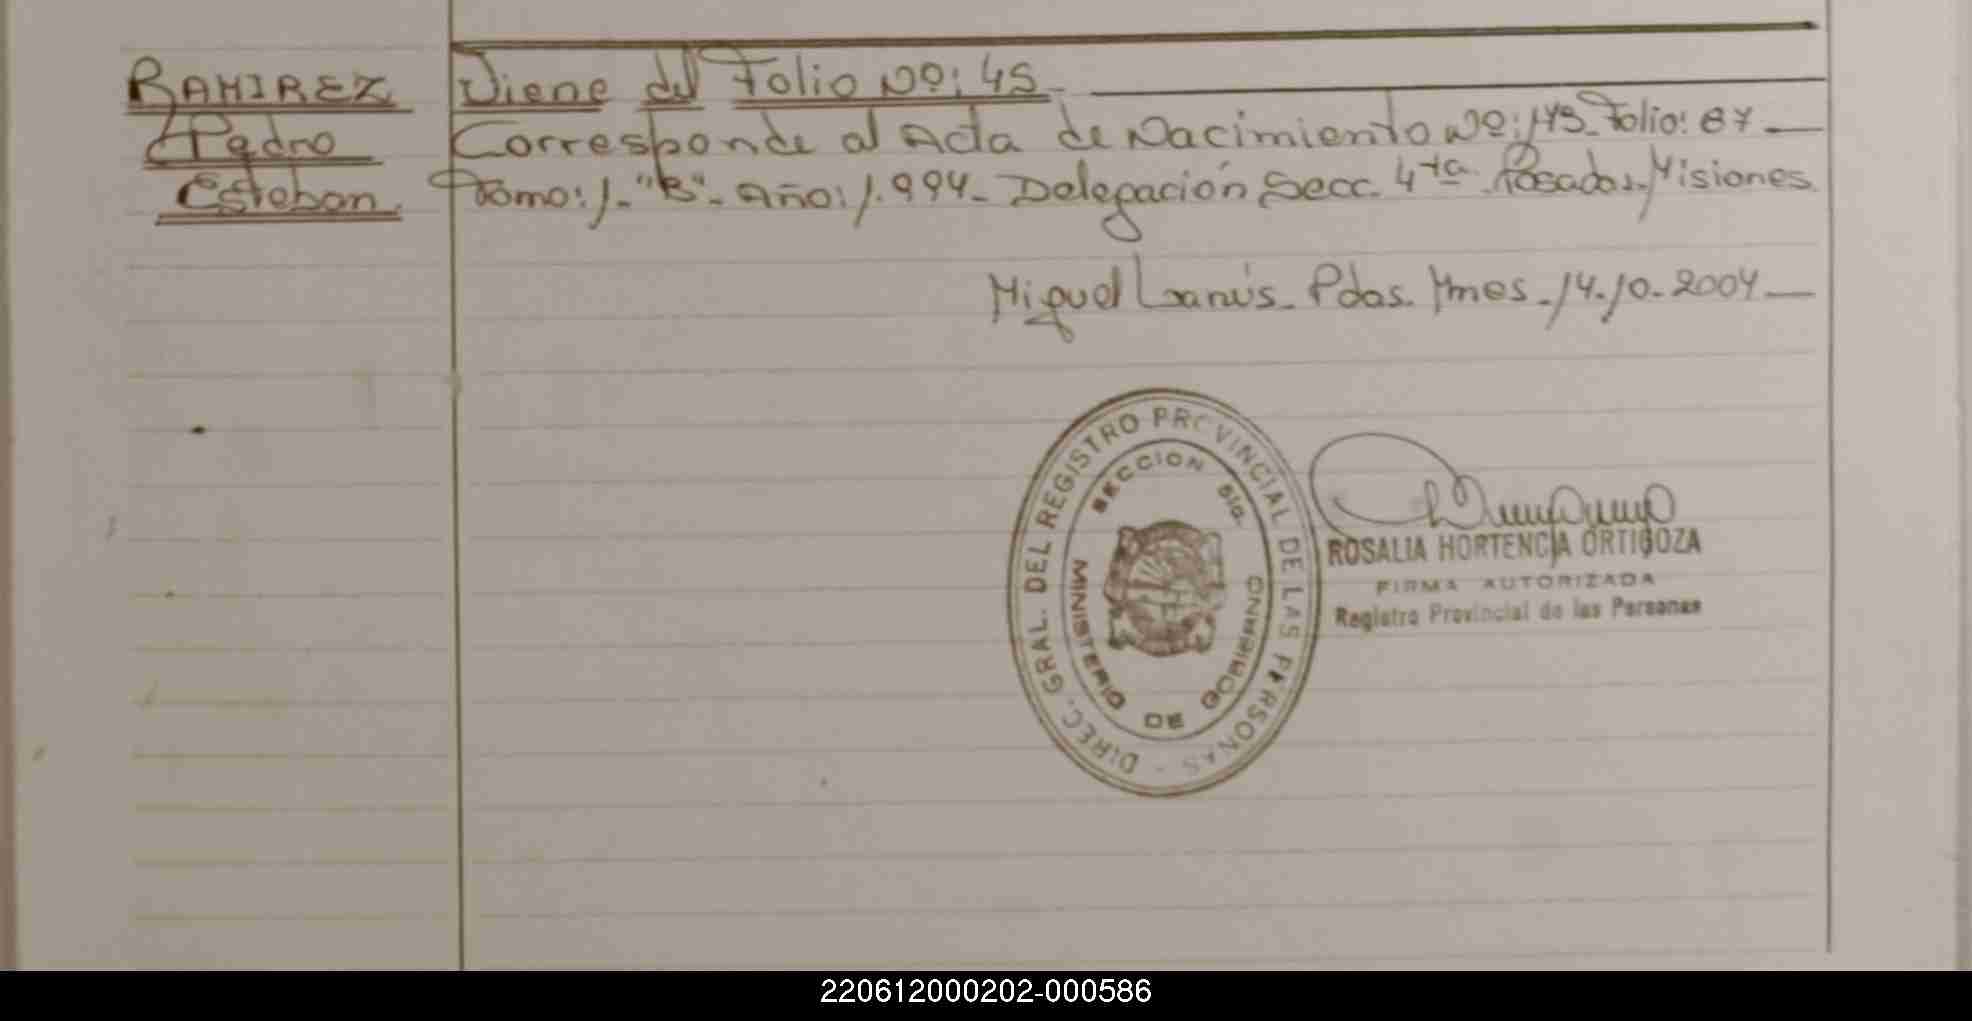 RAMIREZ Viene del Folio Nº: 45.
Pedro Corresponde al Acta de Nacimiento Nº: 173. Folio: 87
Esteban. Tomo: 1- "B"- Año: 1.994- Delegación Secc. 4ta Posadas. Misiones
Miguel Lanús- Pdas. Mnes- 14-10-2004
DIREC. GRAL. DEL REGISTRO PROVINCIAL DE LAS PERSONAS -
SECCION
MINISTERIO DE GOBIERNO
ROSALIA HORTENCIA ORTIGOZA
FIRMA AUTORIZADA
Registro Provincial de las Personas
220612000202-000586